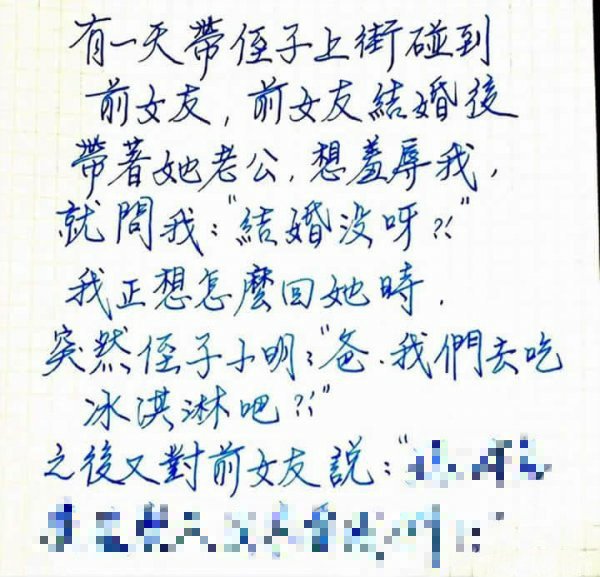 有一天帶侄子上街碰到
前女友，前女友結婚後
帶著她老公，想羞辱我，
就問我："結婚没呀?!"
我正想怎麼回她時，
突然侄子小明："爸、我們去吃
冰淇淋吧?!"
之後又對前女友說："